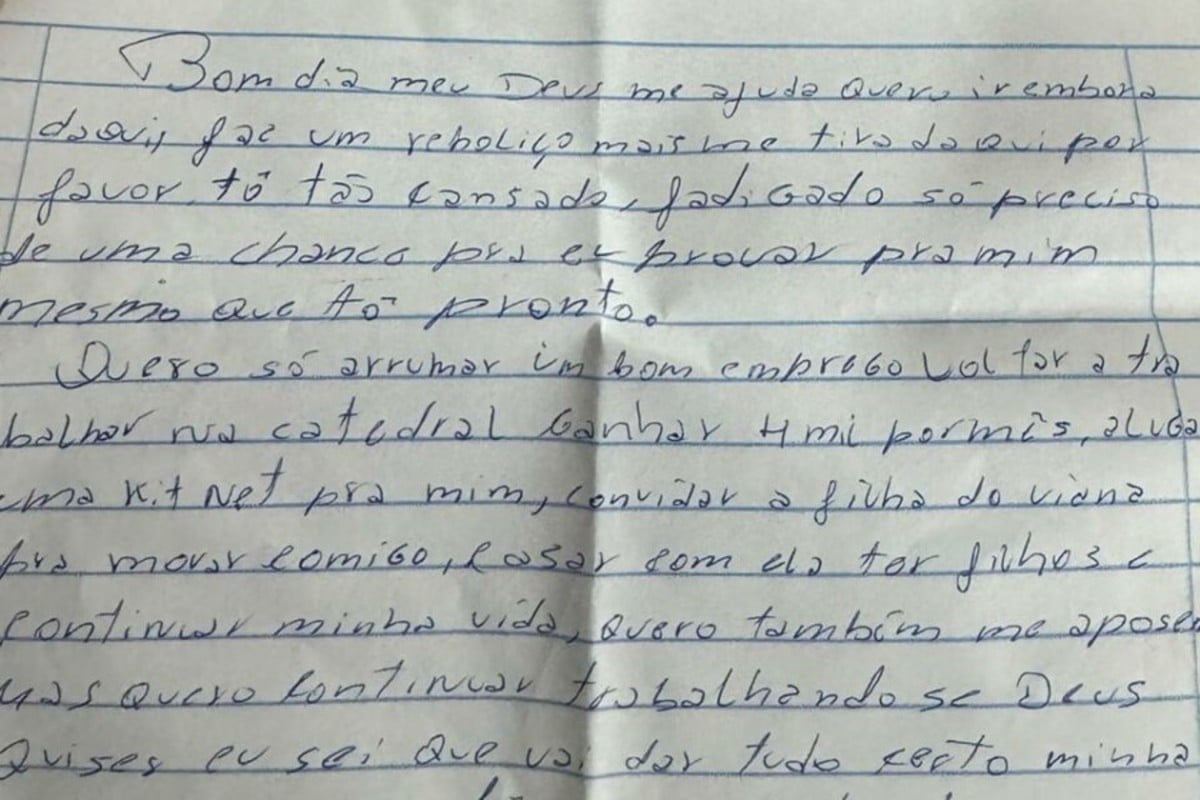 Bom dia meu Deus me ajuda quero ir embora
daqui, faz um reboliço mais me tira daqui por
favor tô tão cansado, fadigado só preciso
de uma chance pra eu provar pra mim
mesmo que tô pronto.
Quero só arrumar um bom emprego voltar a tra
balhar na catedral ganhar 4 mil por mês, aluga
uma Kit Net pra mim, convidar a filha do viana
pra morar comigo, casar com ela ter filhos e
continuar minha vida, quero também me aposen
mas quero continuar trabalhando se Deus
quises eu sei que vai dar tudo certo minha